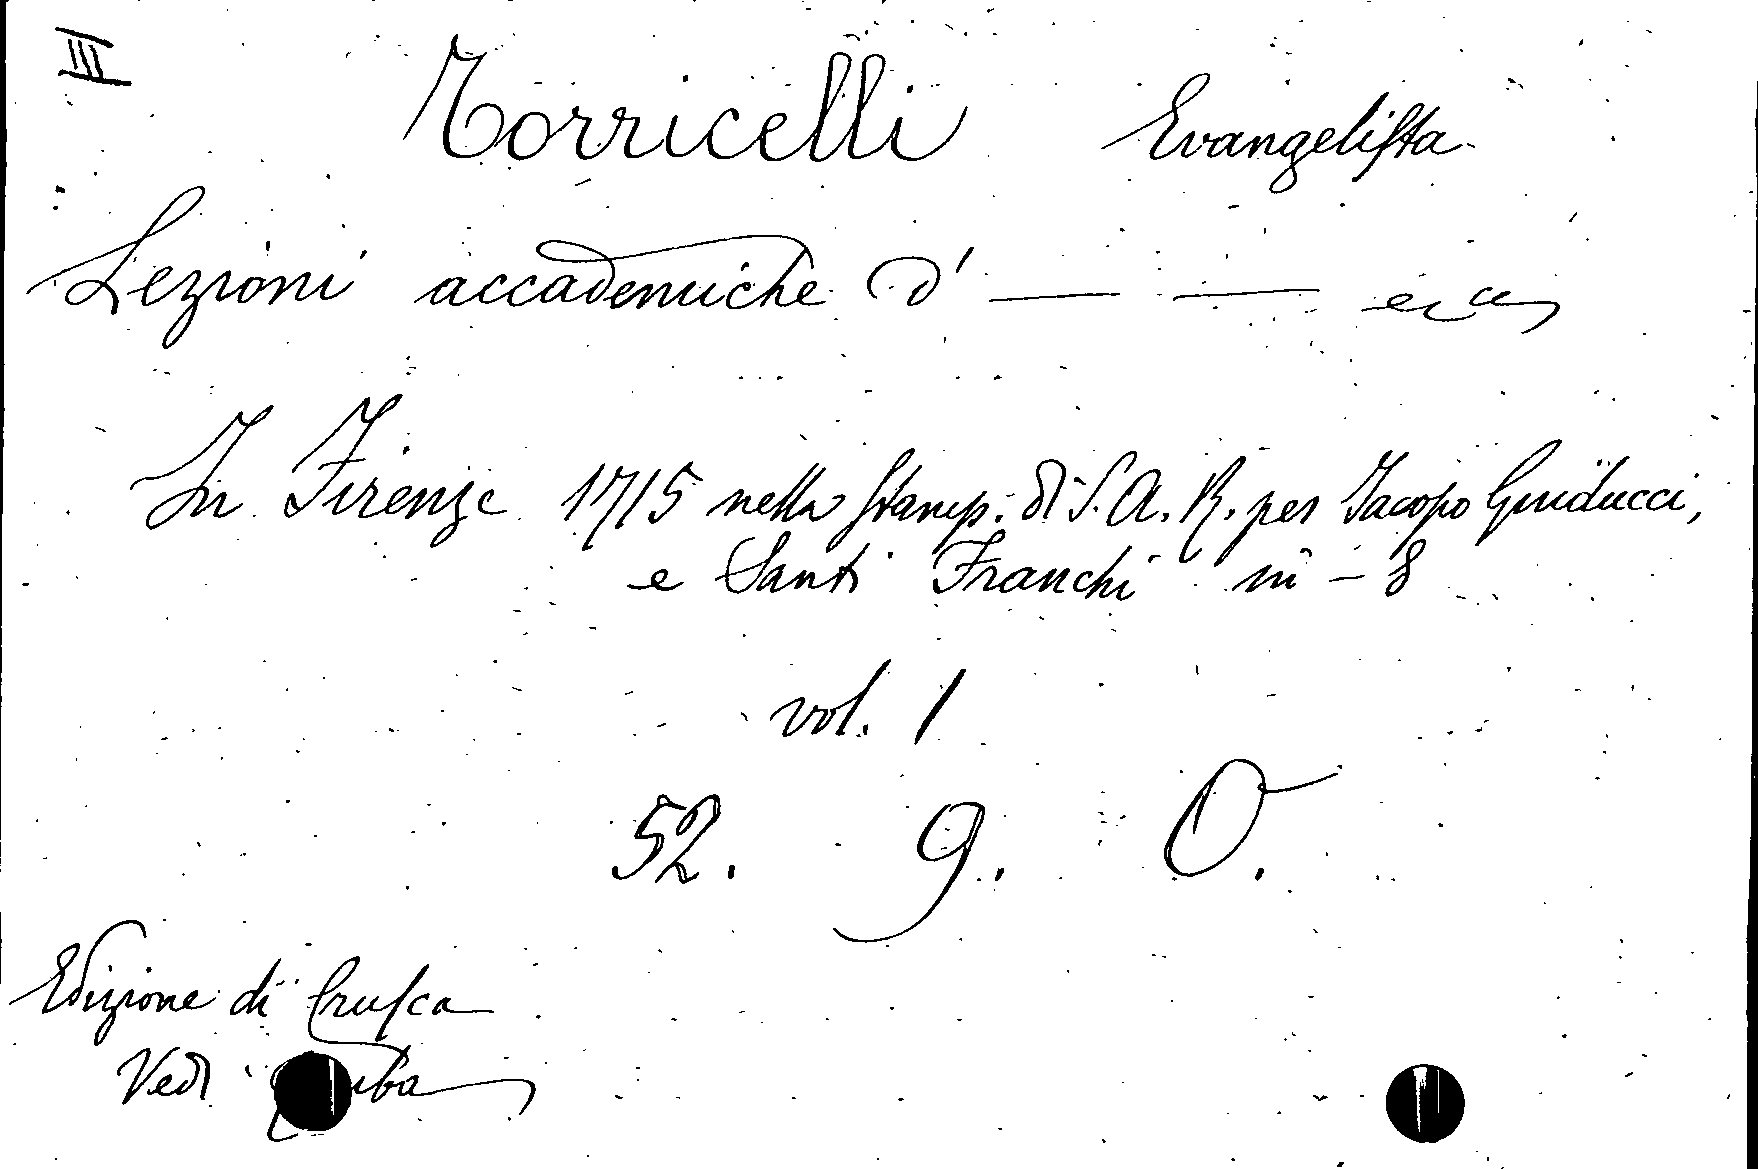 III
Torricelli Evangelista
Lezioni accademiche d' — — ec
In Firenze 1715 nella Stamp. di S. A. R. per Jacopo Guiducci,
e Santi Franchi in - 8
vol. 1
52. 9. O.
Edizione di Crusca
Vedi